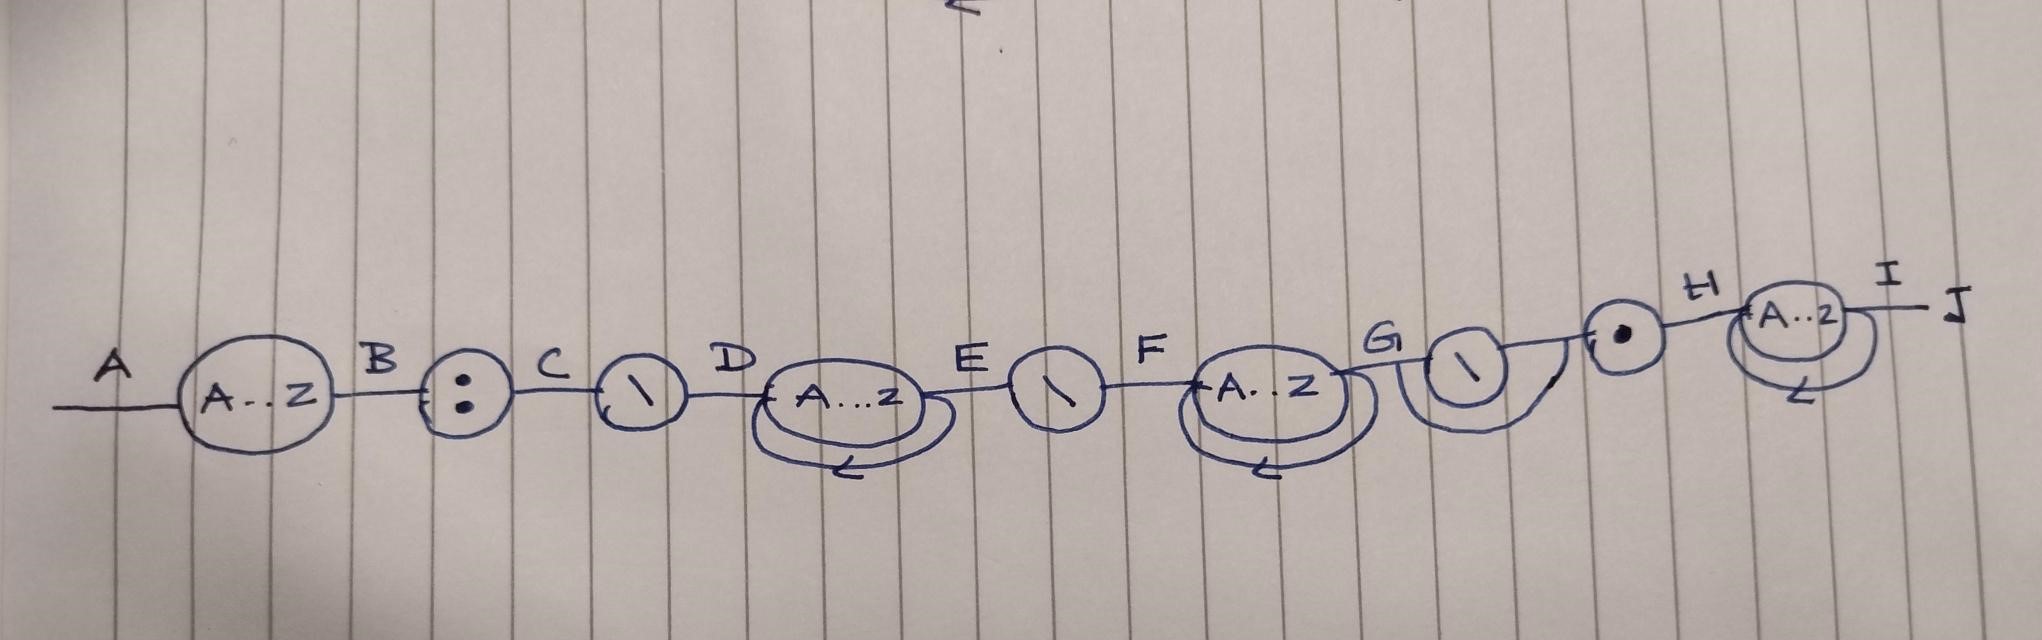 A A...Z B : C \ D A...Z E \ F A..Z G \ . H A..Z I J